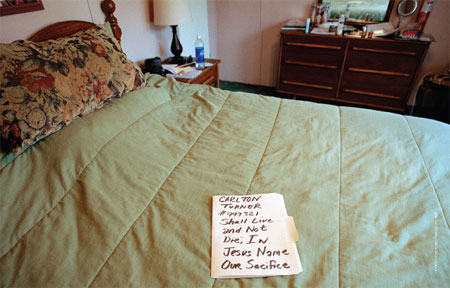 CARLTON
TURNER
#999321
Shall Live
and Not
Die, In
Jesus Name
Our Sacifice